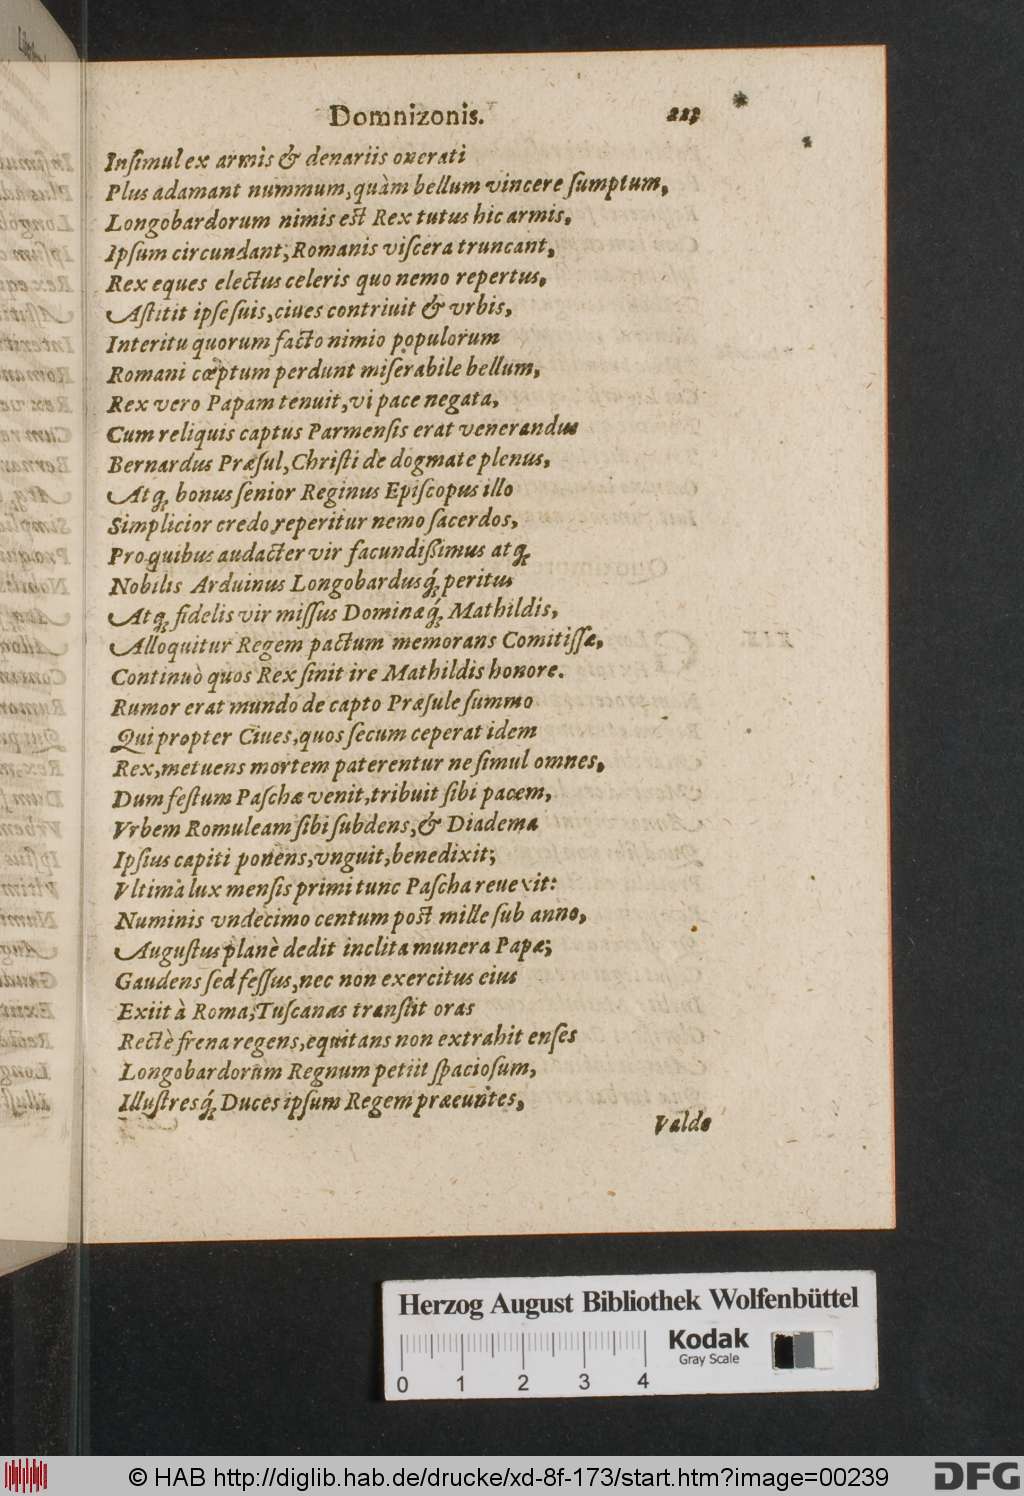 Domnizonis. 223
Inſimul ex armis & denariis onerati
Plus adamant nummum, quàm bellum vincere ſumptum,
Longobardorum nimis est Rex tutus hic armis,
Ipſum circundant, Romanis viſcera truncant,
Rex eques electus celeris quo nemo repertus,
Aſtitit ipſe ſuis, ciues contriuit & vrbis,
Interitu quorum facto nimio populorum
Romani cœptum perdunt miſerabile bellum,
Rex vero Papam tenuit, vi pace negata,
Cum reliquis captus Parmenſis erat venerandus
Bernardus Præſul, Chriſti de dogmate plenus,
Atq; bonus ſenior Reginus Epiſcopus illo
Simplicior credo, reperitur nemo ſacerdos,
Pro quibus audacter vir facundißimus atq;
Nobilis Arduinus Longobardusq́; peritus
Atq; fidelis vir miſſus Dominæq́; Mathildis,
Alloquitur Regem pactum memorans Comitiſſæ,
Continuò quos Rex ſinit ire Mathildis honore.
Rumor erat mundo de capto Præſule ſummo
Qui propter Ciues, quos ſecum ceperat idem
Rex, metuens mortem paterentur ne ſimul omnes,
Dum feſtum Paſchæ venit, tribuit ſibi pacem,
Vrbem Romuleam ſibi ſubdens, & Diadema
Ipſius capiti ponens, vnguit, benedixit;
Vltima lux menſis primi tunc Paſcha reuexit:
Numinis vndecimo centum post mille ſub anno,
Auguſtus planè dedit inclita munera Papæ;
Gaudens ſed feſſus, nec non exercitus eius
Exiit à Roma; Tuſcanas tranſiit oras
Rectè frena regens, equitans non extrahit enſes
Longobardorum Regnum petiit ſpacioſum,
Illuſtresq́; Duces ipſum Regem præeuntes,
Valde
Herzog August Bibliothek Wolfenbüttel
Kodak
Gray Scale
0 1 2 3 4
© HAB http://diglib.hab.de/drucke/xd-8f-173/start.htm?image=00239
DFG